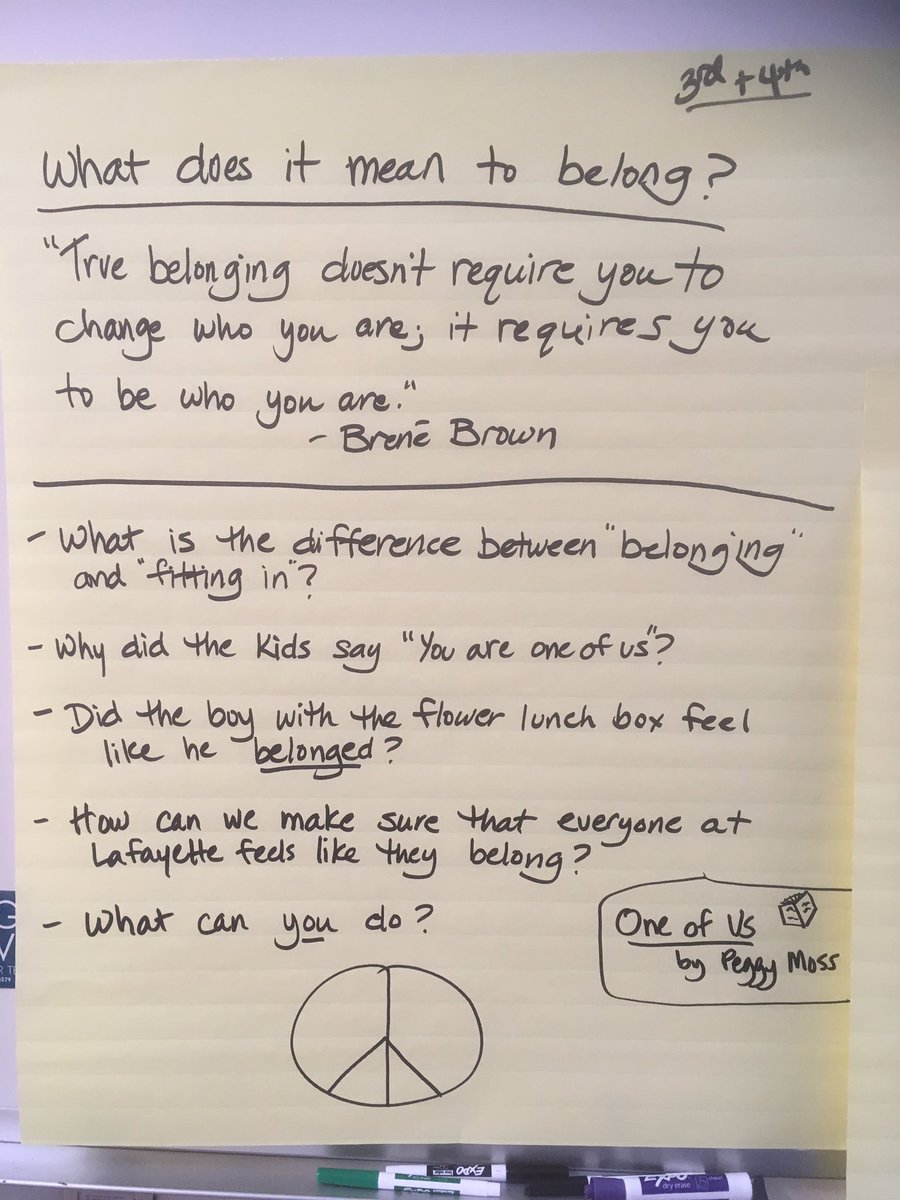 3rd + 4th
What does it mean to belong?
"True belonging doesn't require you to
change who you are; it requires you
to be who you are."
- Brenē Brown
- What is the difference between "belonging"
and "fitting in"?
- Why did the kids say "You are one of us"?
- Did the boy with the flower lunch box feel
like he belonged?
- How can we make sure that everyone at
Lafayette feels like they belong?
- What can you do?
One of Us
by Peggy Moss
EXPO
EXPO
dry erase